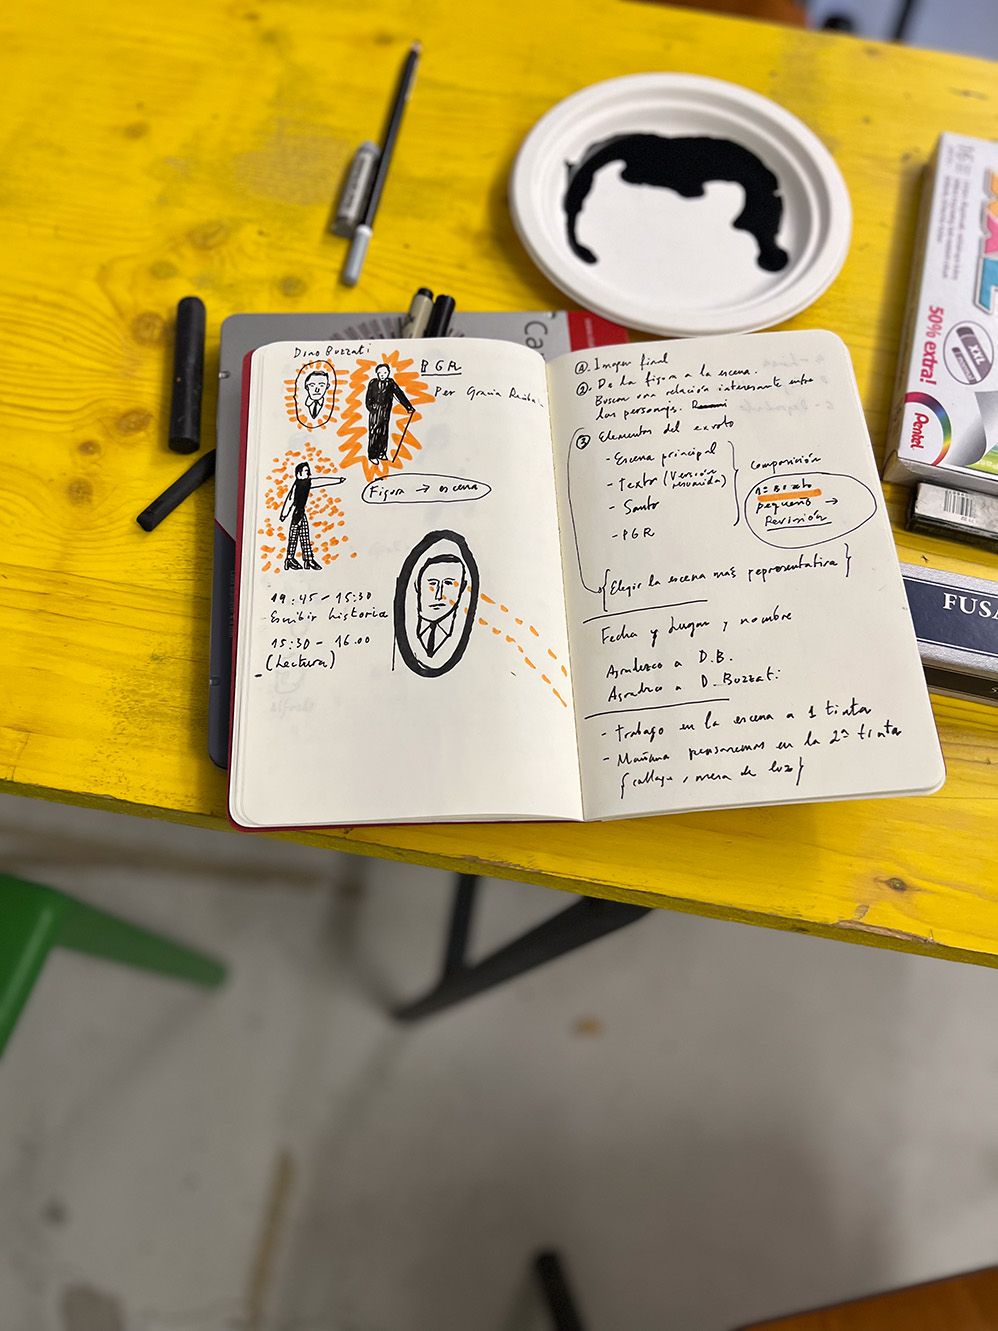 Dino Buzzati
PGR
Per Gracia
Figura → escena
14:45 - 15:30
Escribir historia
15:30 - 16.00
(Lectura)
①. Imagen final
②. De la figura a la escena.
Buscar una relación interesante entre
los personajes.
③ Elementos del exvoto
- Escena principal
- Texto (Versión resumida)
- Santo
- PGR
Composición
1er Boceto
pequeño →
Revisión
{Elegir la escena más representativa}
Fecha y Lugar y nombre
Agradezco a D.B.
Agradezco a D. Buzzati.
- Trabajo en la escena a 1 tinta
- Mañana pensaremos en la 2ª tinta
{collage, mesa de luz}
XXL
50% extra!
Pentel
FUSA